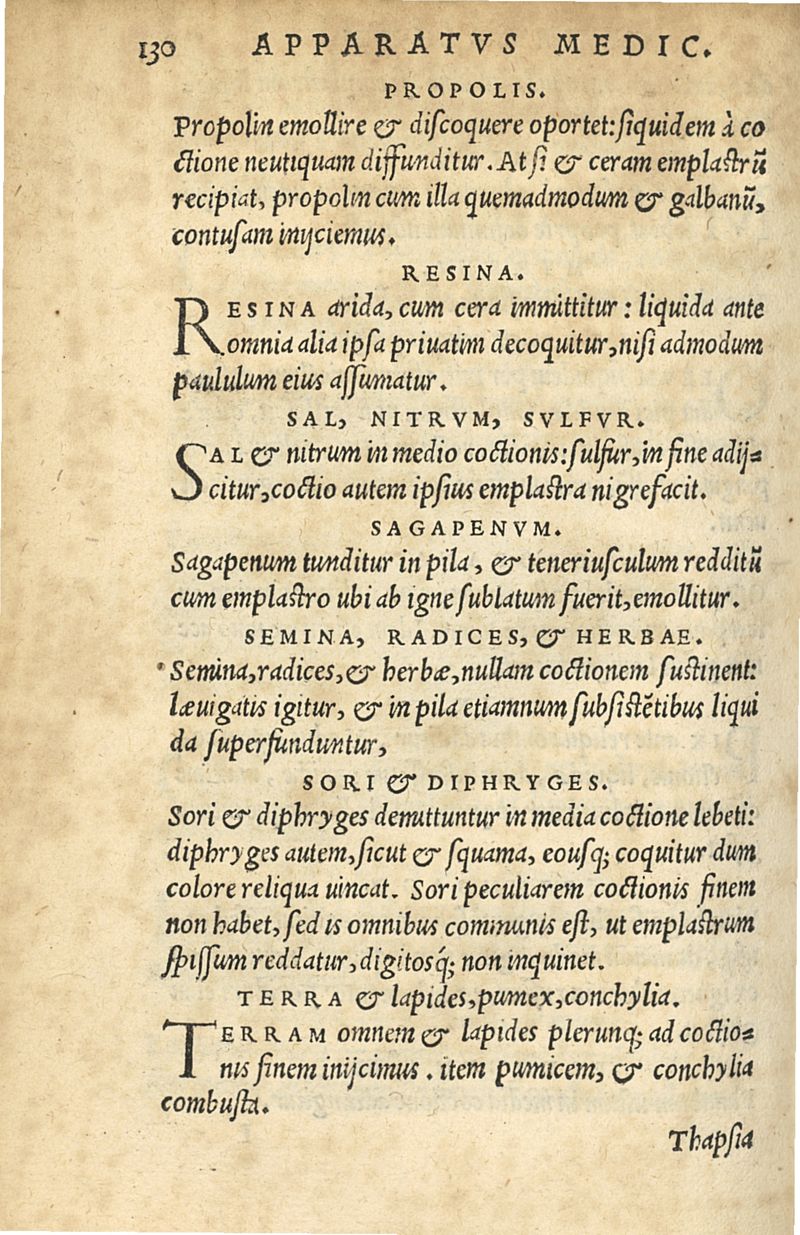 130 APPARATVS MEDIC.
PROPOLIS.
Propolin emollire & discoquere oportet: siquidem à co
ctione neutiquam diffunditur. At si & ceram emplastrū
recipiat, propolin cum illa quemadmodum & galbanū,
contusam inijciemus.
RESINA.
RESINA arida, cum cera immittitur : liquida ante
omnia alia ipsa priuatim decoquitur, nisi admodum
paululum eius assumatur.
SAL, NITRVM, SVLFVR.
SAL & nitrum in medio coctionis: sulfur, in fine adij=
citur, coctio autem ipsius emplastra nigrefacit.
SAGAPENVM.
Sagapenum tunditur in pila, & teneriusculum redditū
cum emplastro ubi ab igne sublatum fuerit, emollitur.
SEMINA, RADICES, & HERBAE.
Semina, radices, & herbæ, nullam coctionem sustinent:
læuigatis igitur, & in pila etiamnum subsistētibus liqui
da superfunduntur,
SORI & DIPHRYGES.
Sori & diphryges demittuntur in media coctione lebeti:
diphryges autem, sicut & squama, eousq; coquitur dum
colore reliqua uincat. Sori peculiarem coctionis finem
non habet, sed is omnibus communis est, ut emplastrum
spissum reddatur, digitosq́; non inquinet.
TERRA & lapides, pumex, conchylia.
TERRAM omnem & lapides plerunq; ad coctio=
nis finem inijcimus. item pumicem, & conchylia
combusta.
Thapsia